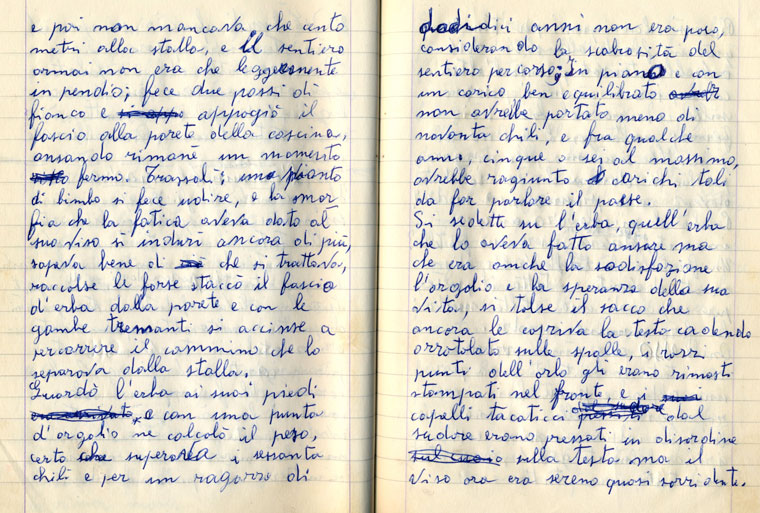 e poi non mancava che cento
metri alla stalla, e il sentiero
ormai non era che leggermente
in pendio; fece due passi di
fianco e appoggiò il
fascio alla parete della cascina,
ansando rimane un momento
fermo. Trassalì; una pianto
di bimbo si fece udire, e la smor
fia che la fatica aveva dato al
suo viso si indurì ancora di più,
sapeva bene di che si trattava,
raccolse le forse staccò il fascio
d'erba dalla parete e con le
gambe tremanti si accinse a
percorrere il cammino che lo
separava dalla stalla.
Guardò l'erba ai suoi piedi
e con una punta
d'orgolio ne calcolò il peso,
certo superava i sessanta
chili e per un ragazzo di
dodidici anni non era poco,
considerando la scabrosità del
sentiero percorso; in piano e con
un carico ben equilibrato
non avrebbe portato meno di
novanta chili, e fra qualche
anno, cinque o sei al massimo,
avrebbe ragiunto carichi tali
da far parlare il paese.
Si sedette su l'erba, quell'erba
che lo aveva fatto ansare ma
che era anche la sodisfazione
l'orgolio e la speranza della sua
vita, si tolse il sacco che
ancora le copriva la testa cadendo
arrotolato sulle spalle, i rozzi
punti dell'orlo gli erano rimasti
stampati nel fronte, e i
capelli atacaticci dal
sudore erano pressati in disordine
sulla testa ma il
viso ora era sereno quasi sorridente.